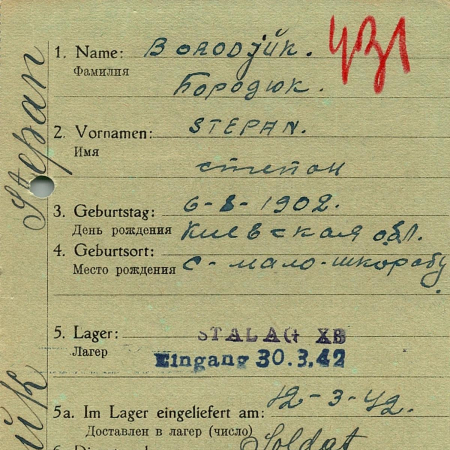 431
1. Name: Borodjúk.
Фамилия
Бородюк.
2. Vornamen: STEPAN.
Имя
степан
3. Geburtstag: 6-8-1902.
День рождения Киевская обл.
4. Geburtsort: с-мало-шкорабу
Место рождения
5. Lager: STALAG XB
Лагер Eingang 30.3.42
5a. Im Lager eingeliefert am: 12-3-42.
Доставлен в лагер (число)
Soldat
Stepan